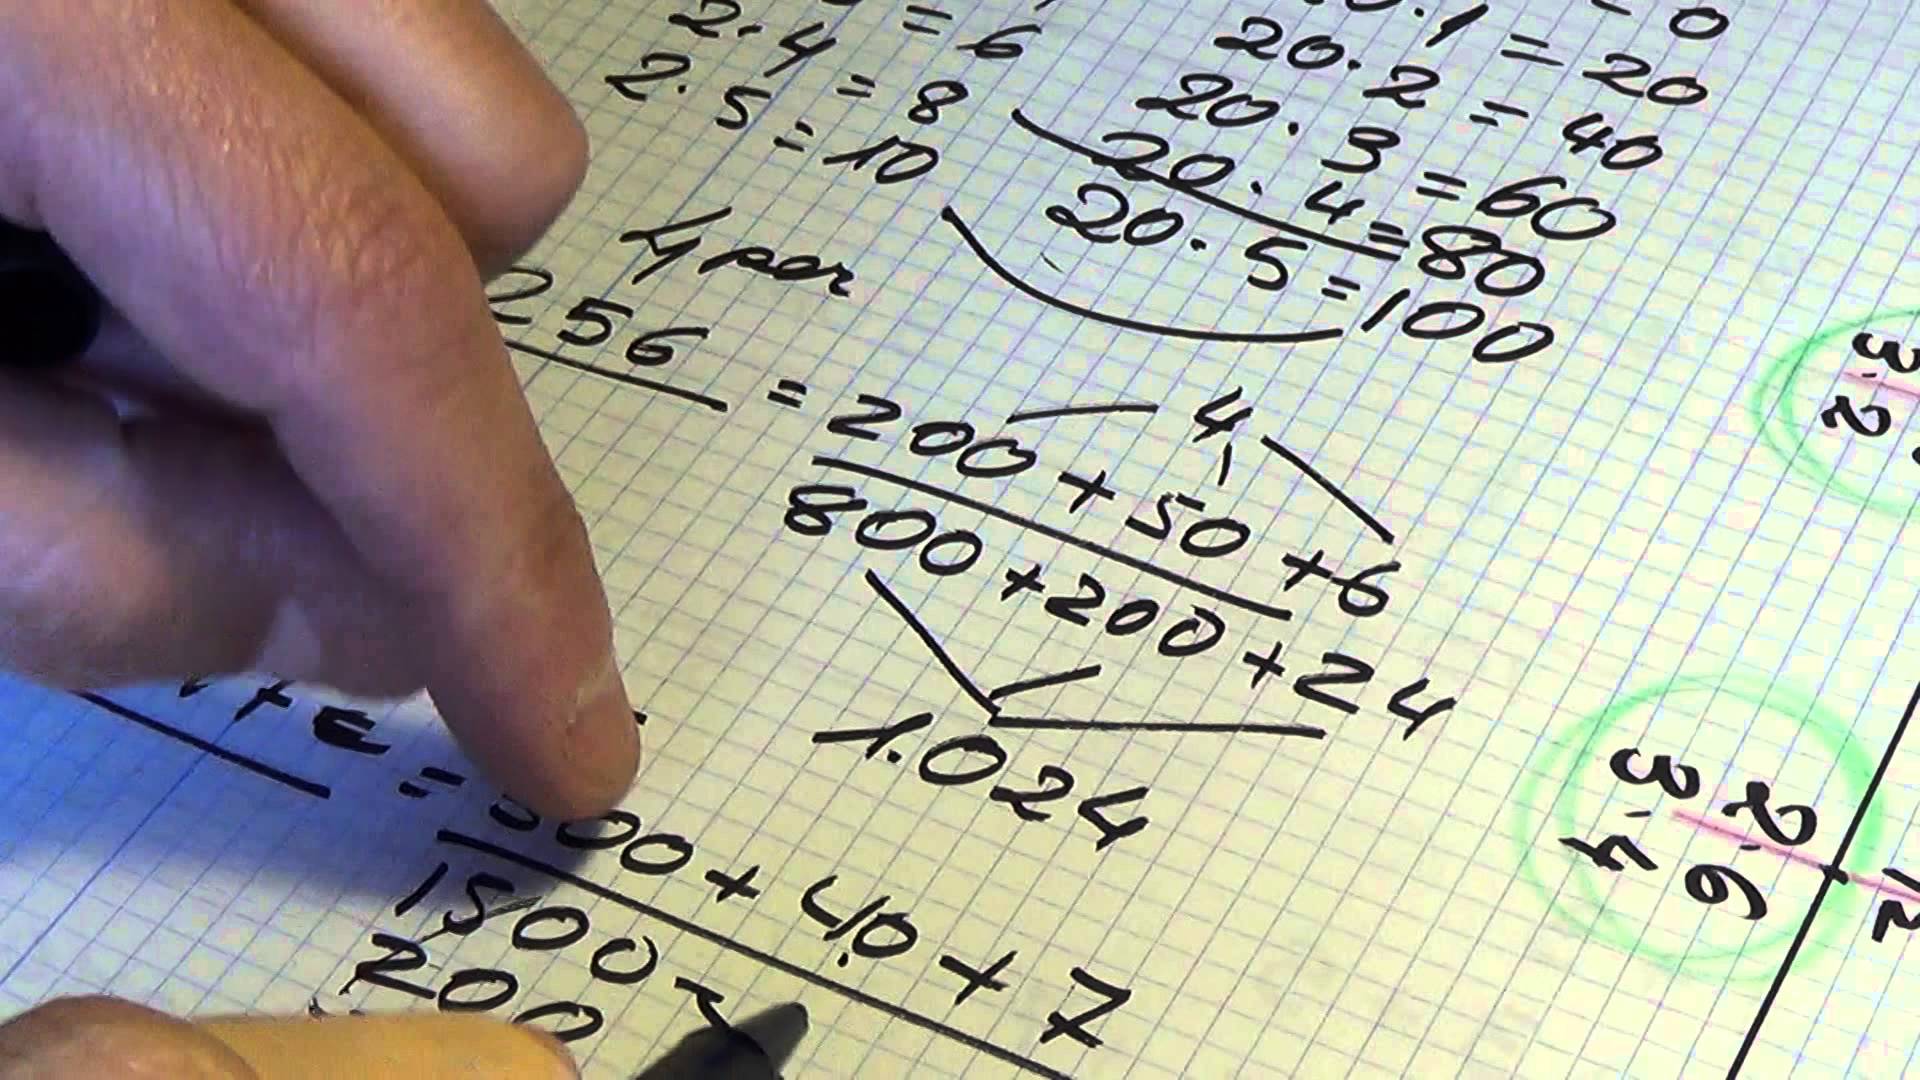 = 6
2·4 = 8
2·5 = 10
·1 = 20
20·2 = 40
20·3 = 60
20·4 = 80
20·5 = 100
= 0
4 per
256 = 200 + 50 + 6
4
800 + 200 + 24
1.024
00 + 40 + 7
1500
200
3·2
3·4
2·6
12